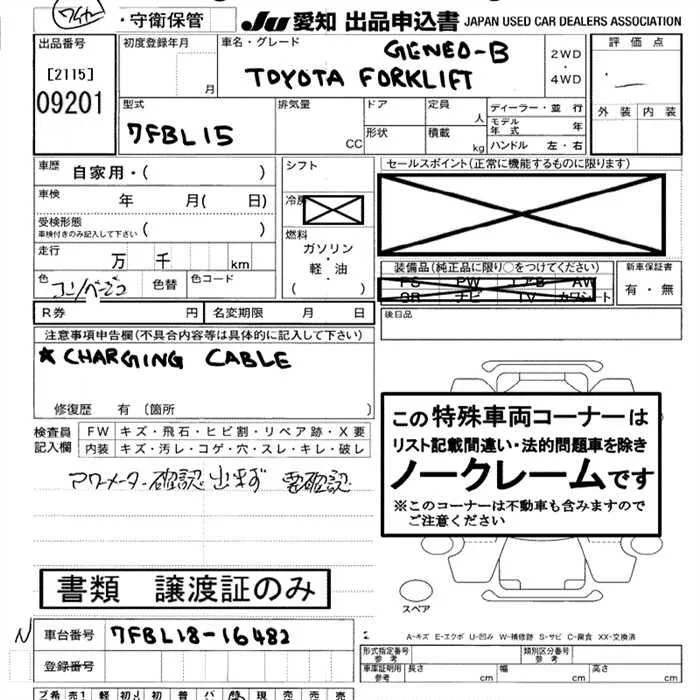 ・守衛保管 JU 愛知 出品申込書 JAPAN USED CAR DEALERS ASSOCIATION
出品番号 初度登録年月 車名・グレード GENEO-B 2WD 評価点
[2115] 月 TOYOTA FORKLIFT ・ 4WD
09201 型式 排気量 ドア 定員 人 ディーラー・並行 外装 内装
7FBL15 CC 形状 積載 kg モデル年式 年
ハンドル 左・右
車歴 自家用・( ) シフト セールスポイント(正常に機能するものに限ります)
車検 年 月( 日) 冷房
受検形態 車検付きのみ記入して下さい ( ) 燃料
走行 万 千 km ガソリン・軽・油 ( )
装備品(純正品に限り○をつけてください) 新車保証書
色 色替 色コード PS PW エアB AW 有・無
SR ナビ TV カワシート
R券 円 名変期限 月 日 後日品
注意事項申告欄(不具合内容等は具体的に記入して下さい)
★CHARGING CABLE
修復歴 有 (箇所 )
検査員記入欄 FW キズ・飛石・ヒビ割・リペア跡・X要
内装 キズ・汚レ・コゲ・穴・スレ・キレ・破レ
アワーメーター確認出来ず 要確認
この特殊車両コーナーは
リスト記載間違い・法的問題車を除き
ノークレームです
※このコーナーは不動車も含みますので
ご注意ください
書類 譲渡証のみ
スペア
A-キズ E-エクボ U-凹み W-補修跡 S-サビ C-腐食 XX-交換済
N 車台番号 7FBL18-16482
登録番号
形式指定番号 参考 類別区分番号 参考
車庫証明用 参考 長さ cm 幅 cm 高さ cm